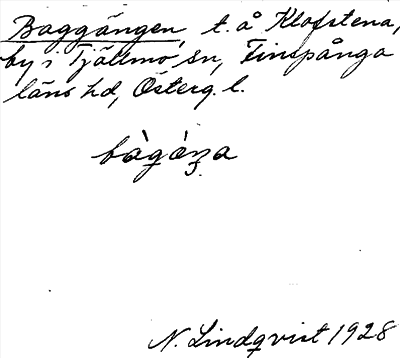 Baggängen, t. å Klofstena,
by i Tjällmo sn, Finspånga
läns hd, Österg. l.
bàgàŋa
N. Lindqvist 1928